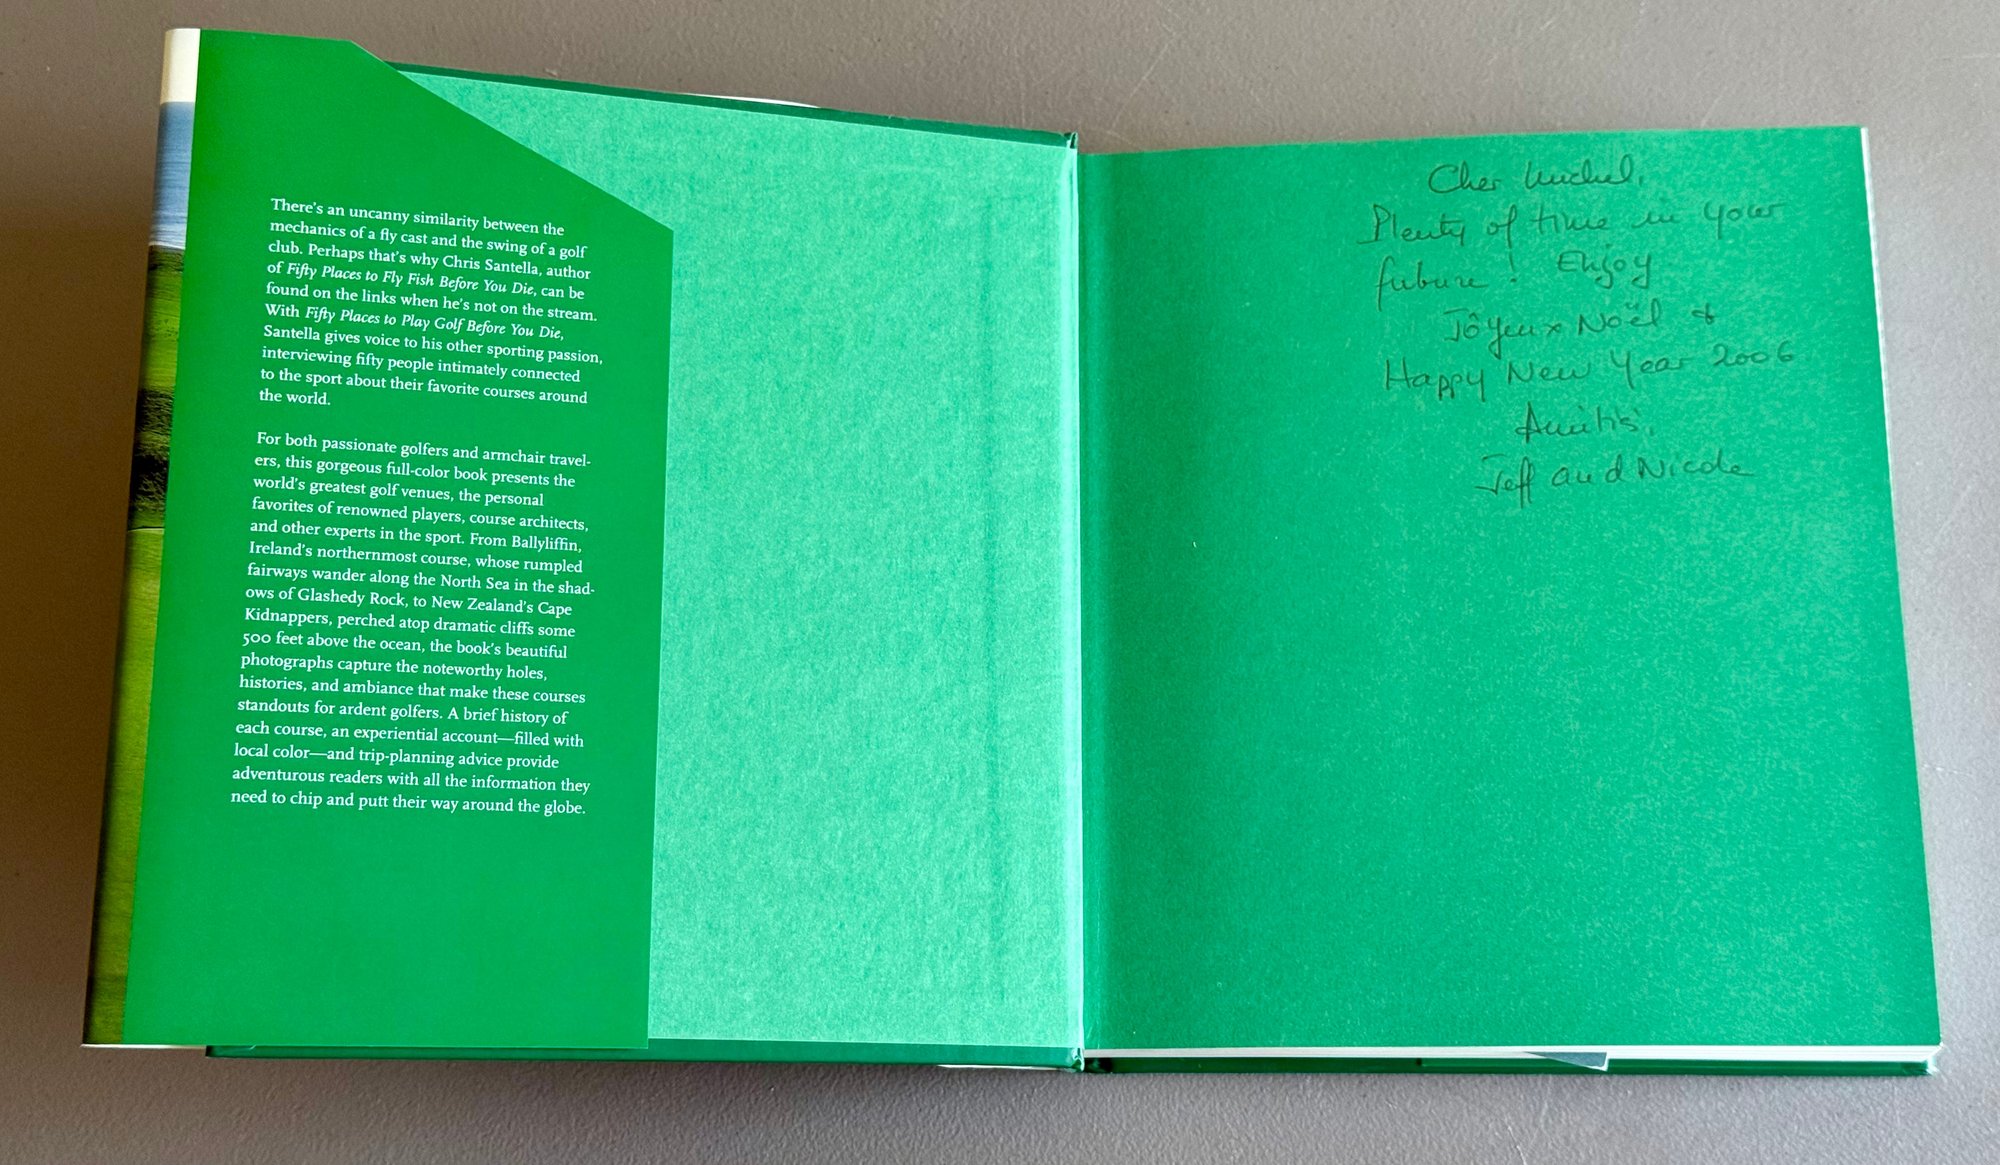 There's an uncanny similarity between the
mechanics of a fly cast and the swing of a golf
club. Perhaps that's why Chris Santella, author
of Fifty Places to Fly Fish Before You Die, can be
found on the links when he's not on the stream.
With Fifty Places to Play Golf Before You Die,
Santella gives voice to his other sporting passion,
interviewing fifty people intimately connected
to the sport about their favorite courses around
the world.
For both passionate golfers and armchair travel-
ers, this gorgeous full-color book presents the
world's greatest golf venues, the personal
favorites of renowned players, course architects,
and other experts in the sport. From Ballyliffin,
Ireland's northernmost course, whose rumpled
fairways wander along the North Sea in the shad-
ows of Glashedy Rock, to New Zealand's Cape
Kidnappers, perched atop dramatic cliffs some
500 feet above the ocean, the book's beautiful
photographs capture the noteworthy holes,
histories, and ambiance that make these courses
standouts for ardent golfers. A brief history of
each course, an experiential account—filled with
local color—and trip-planning advice provide
adventurous readers with all the information they
need to chip and putt their way around the globe.
Cher Michel,
Plenty of time in your
future! Enjoy
Jôyeux Noël &
Happy New Year 2006
Amitiés,
Jeff and Nicole